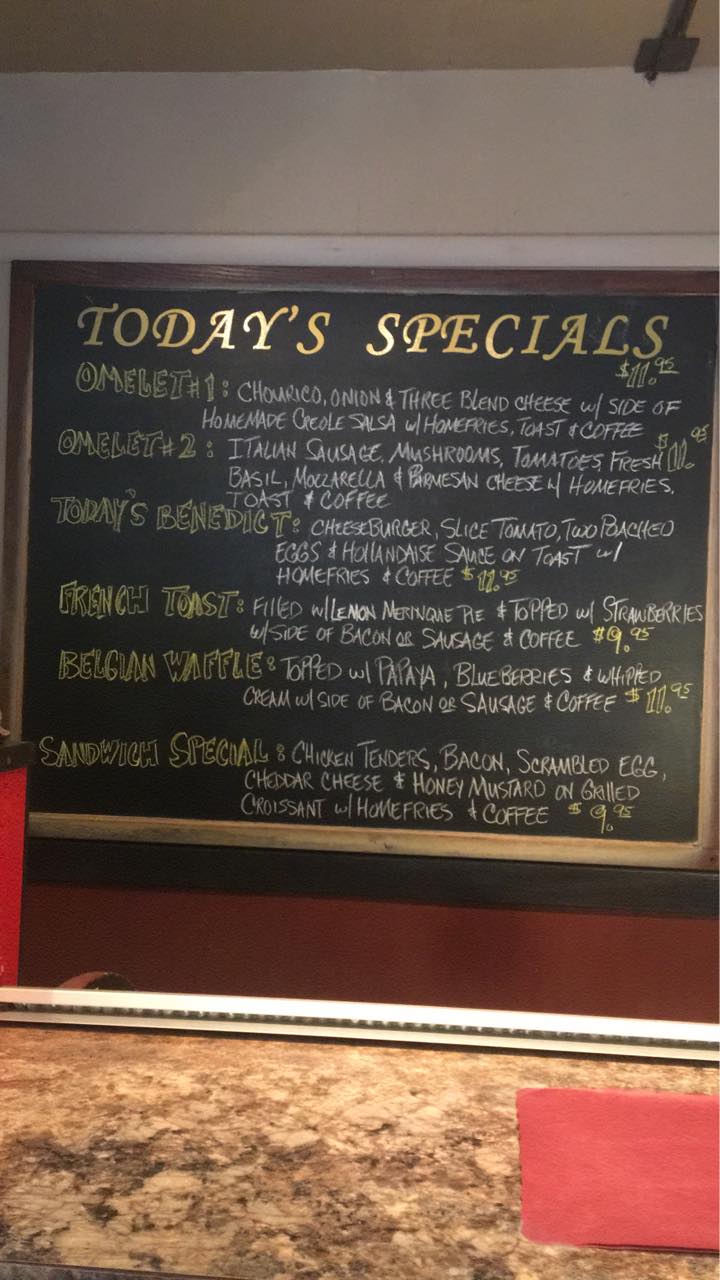 TODAY'S SPECIALS
$11.95
OMELET #1: CHOURICO, ONION & THREE BLEND CHEESE w/ SIDE OF
HOMEMADE CREOLE SALSA w/ HOMEFRIES, TOAST & COFFEE
OMELET #2: ITALIAN SAUSAGE, MUSHROOMS, TOMATOES FRESH $11.95
BASIL, MOZZARELLA & PARMESAN CHEESE w/ HOMEFRIES,
TOAST & COFFEE
TODAY'S BENEDICT: CHEESEBURGER, SLICE TOMATO, TWO POACHED
EGGS & HOLLANDAISE SAUCE ON TOAST w/
HOMEFRIES & COFFEE $11.95
FRENCH TOAST: FILLED w/ LEMON MERINGUE PIE & TOPPED w/ STRAWBERRIES
w/ SIDE OF BACON OR SAUSAGE & COFFEE $9.95
BELGIAN WAFFLE: TOPPED w/ PAPAYA, BLUEBERRIES & WHIPPED
CREAM w/ SIDE OF BACON OR SAUSAGE & COFFEE $11.95
SANDWICH SPECIAL: CHICKEN TENDERS, BACON, SCRAMBLED EGG,
CHEDDAR CHEESE & HONEY MUSTARD ON GRILLED
CROISSANT w/ HOMEFRIES & COFFEE $9.95